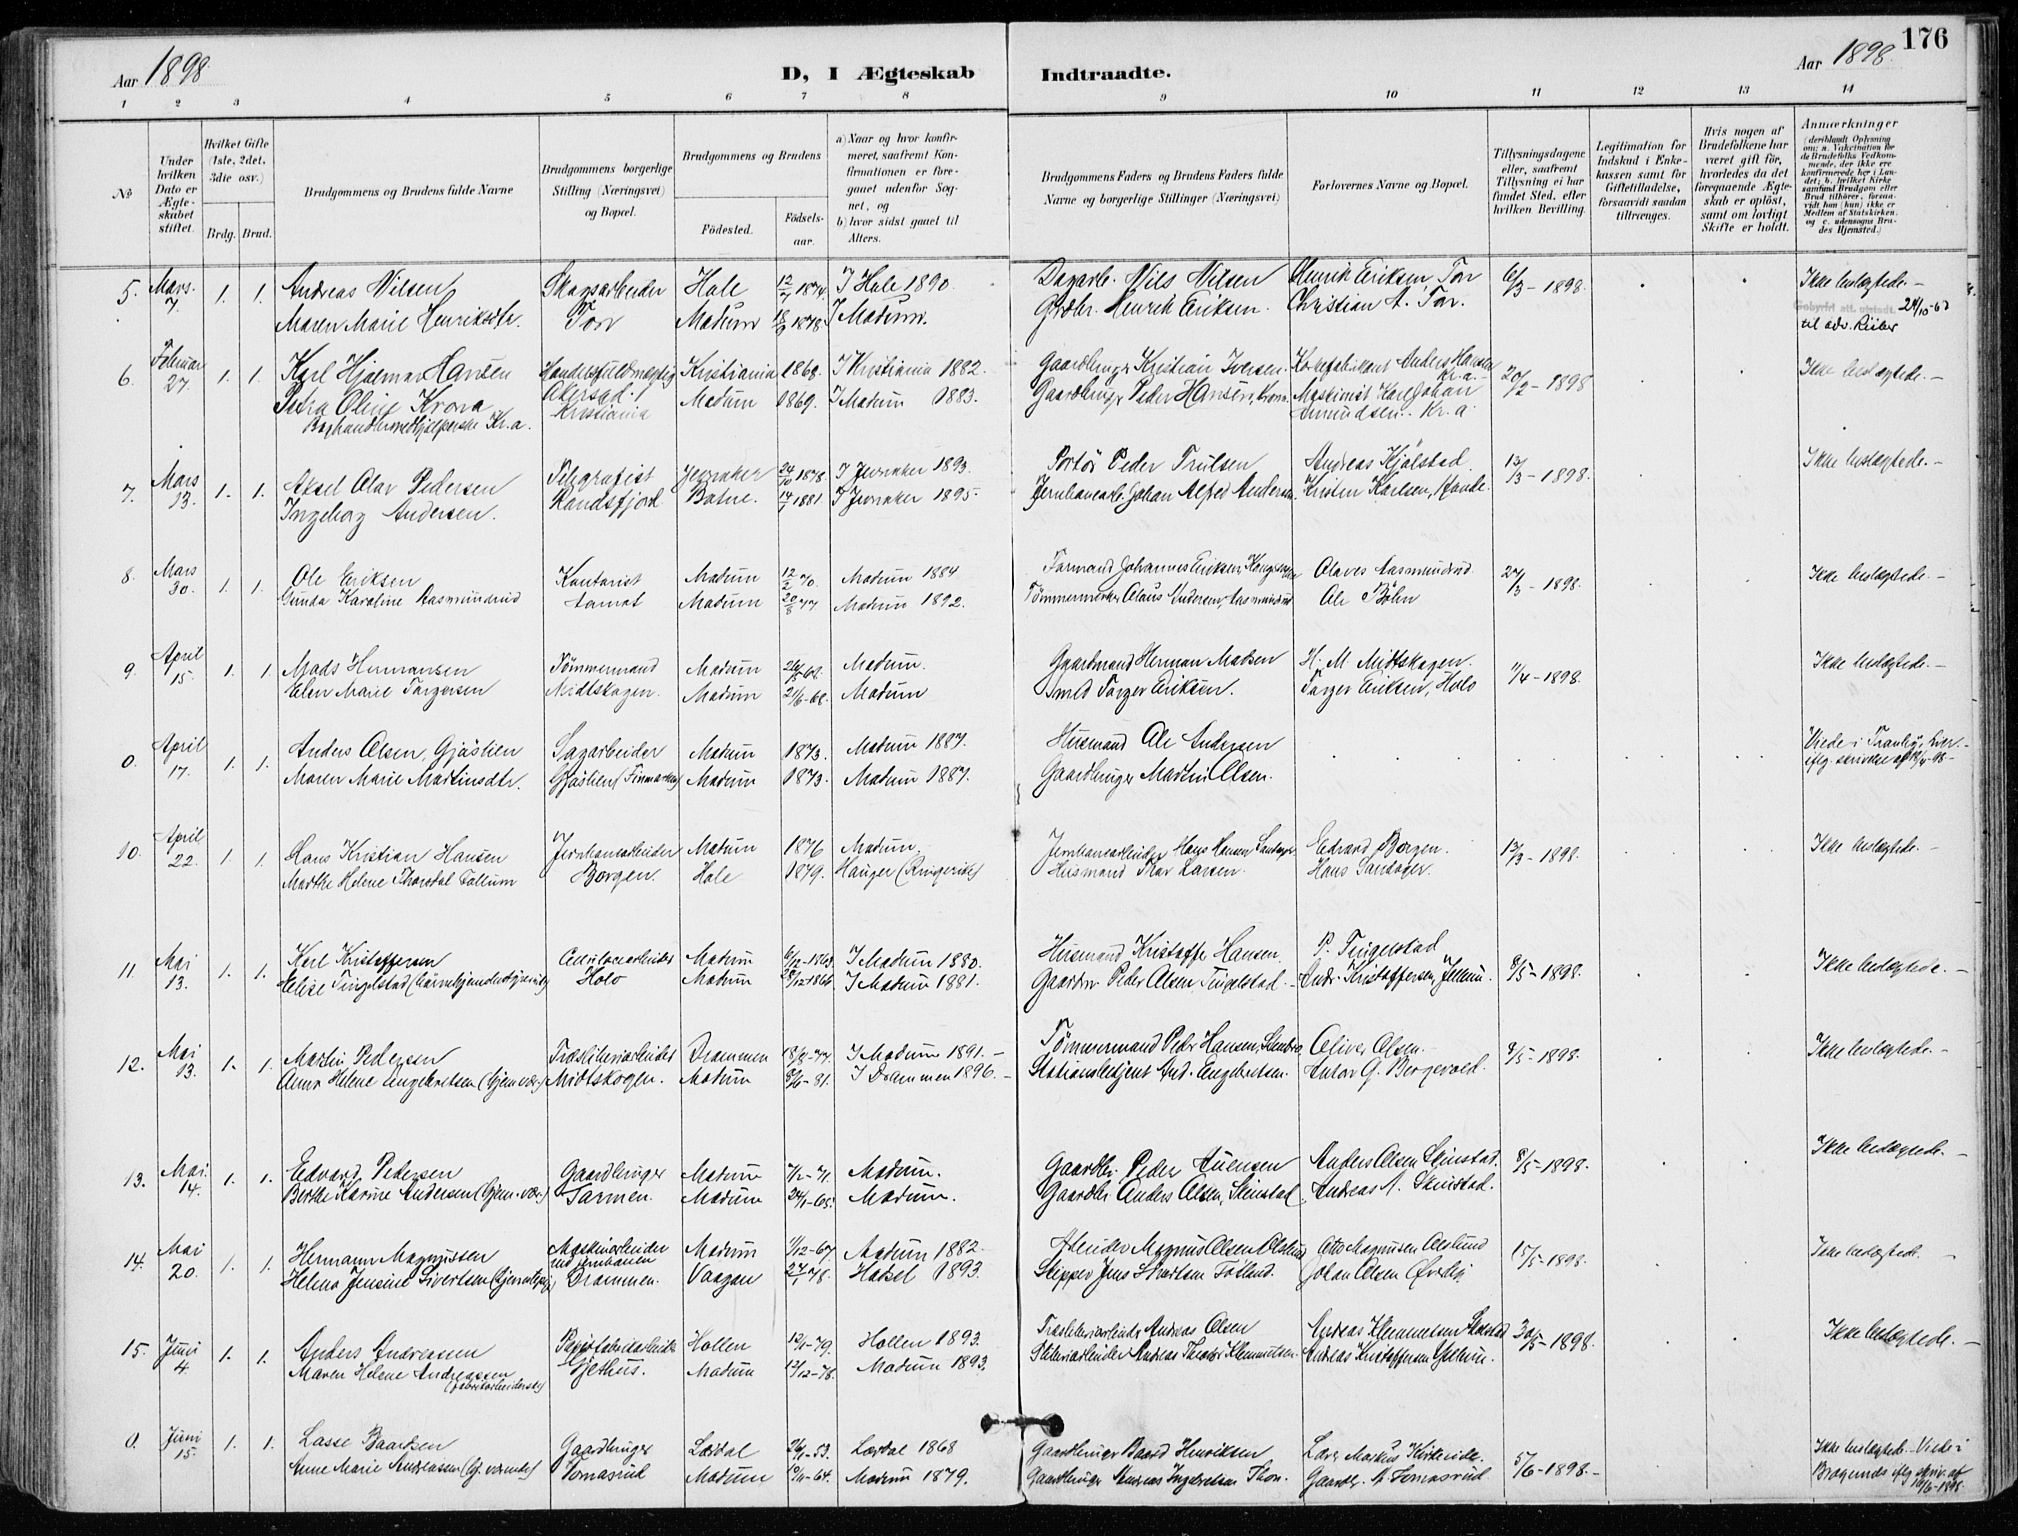 176
Aar 1898
D, I Ægteskab
Indtraadte.
Aar 1898.
1 2 3 4 5 6 7 8 9 10 11 12 13 14
No
Under hvilken Dato er Ægteskabet stiftet.
Hvilket Gifte (1ste, 2det, 3dte osv.)
Brdg. Brud.
Brudgommens og Brudens fulde Navne
Brudgommens borgerlige Stilling (Næringsvei) og Bopæl.
Brudgommens og Brudens
Fødested.
Fødselsaar.
a) Naar og hvor konfirmeret, saafremt Konfirmationen er foregaaet udenfor Sognet, og
b) hvor sidst gaaet til Alters.
Brudgommens Faders og Brudens Faders fulde Navne og borgerlige Stillinger (Næringsvei)
Forlovernes Navne og Bopæl.
Tillysningsdagene eller, saafremt Tillysning ei har fundet Sted, efter hvilken Bevilling.
Legitimation for Indskud i Enkekassen samt for Giftetilladelse, forsaavidt saadan tiltrænges.
Hvis nogen af Brudefolkene har været gift før, hvorledes da det foregaaende Ægteskab er opløst, samt om lovligt Skifte er holdt.
Anmærkninger
(deriblandt Oplysning om: a. Vakcination for de Brudefolks Vedkommende, der ikke ere konfirmerede her i Landet; b. hvilket Kirkesamfund Brudgom eller Brud tilhører, forsaavidt han (hun) ikke er Medlem af Statskirken, og c. udensogns Brudes Hjemsted.)
5. Mars 7. 1. 1. Andreas Nilsen Skogsarbeider Hole 12/7 1874. I Hole 1890. Dagarb. Nils Nilsen Henrik Eriksen, Tor 6/3 - 1898. Ikke beslægtede. -
Maren Marie Henriksdtr. Tor Modum 18/9 1878 I Modum. Grdbr. Henrik Eriksen. Christian A. Tor. Gebyrfri att. utstedt. 24/10-60
til adv. Riiber
6. Februar 27. 1. 1. Karl Hjalmar Hansen Handelsfuldmægtig Kristiania 1868. I Kristiania 1882. Gaardbruger Kristian Iversen. Anders Hansen Kr.a. 20/2 - 1898 Ikke beslægtede. -
Petra Oline Krona Kristiania Modum 1869. I Modum 1883. Gaardbruger Peder Hansen, Krona Maskinist Karl Johan
Boghandlermedhjælperske Kr.a. Amundsen. Kr.a.
7. Mars 13. 1. 1. Aksel Olav Pedersen Telegrafist Jevnaker 24/10 1878. I Jevnaker 1893. Portör Peder Trulsen Andreas Kjölstad 13/3 - 1898. Ikke beslægtede. -
Ingeborg Andersen. Randsfjord 14/7 1881. I Jevnaker 1895. Jernbanearb. Johan Alfred Andersen. Kristen Karlsen,
8. Mars 30. 1. 1. Ole Eriksen Kontorist Modum 12/2 70. Modum 1884 Johannes Eriksen, Olaves Aasmundrud 27/3 - 1898. Ikke beslægtede. -
Gunda Karoline Aasmundrud Modum 20/8 77 Modum 1892. Olaus Andersen, Aasmundrud Ole Böhn
9. April 15. 1. 1. Mads Hermansen Tömmermand Modum Modum. Gaardmand Herman Madsen H. M. Midtskogen. 1/4 - 1898. Ikke beslægtede. -
Elen Marie Torgersen Midtskogen. Modum 21/6-68. Modum Smed Torger Eriksen. Torger Eriksen, Holo
0. April 17. 1. 1. Anders Olsen Gjöstien Sagarbeider Modum 1873. Modum 1887. Husmand Ole Andersen Viede i Tranby, Lier
Maren Marie Martinsdtr. Gjöstien (Finmarken) Modum 1873. Modum 1887. Gaardbruger Martin Olsen. iflg. skrivelse af 18/4-98 -
10. April 22. 1. 1. Hans Kristian Hansen Jernbanearbeider Modum 1876 Modum. Jernbanearbeider Hans Hansen Edvard Borgen. 13/3 - 1898. Ikke beslægtede. -
Marthe Helene Thorsdal Follum Borgen. Hole 1879. Hauger (Ringerike) Husmand Thor Larsen. Hans Sandager.
11. Mai 13. 1. 1. Karl Kristoffersen Modum I Modum 1880. Husmand Kristoffer Hansen P. Tingelstad 8/5 - 1898. Ikke beslægtede. -
Helise Tingelstad Holo Modum I Modum 1881. Peder Olsen Tingelstad. Andr. Kristoffersen,
12. Mai 13. 1. 1. Martin Pedersen Træsliberiarbeider Drammen I Modum 1891. Tömmermand Peder Hansen, Oliver Olsen. 8/5 - 1898. Ikke beslægtede. -
Anna Helene Engebretsen (hjemvær.) Midtskogen. Modum 8/6 - 81. I Drammen 1896. Stationsbetjent And. Engebretsen. Anton G. Bergevold.
13. Mai 14. 1. 1. Edvard Pedersen Gaardbruger Modum 7/2 - 71. Modum. Gaardbr. Peder Auensen Anders Olsen Skinstad. 8/5 - 1898. Ikke beslægtede. -
Berthe Karine Andersen (hjem.vær.) Modum 24/1-65. Modum. Gaardbr. Anders Olsen, Skinstad. Andreas A. Skinstad.
14. Mai 20. 1. 1. Hermann Magnussen Maskinarbeider ved jernbanen Modum 1/12-67 Modum 1882. Magnus Olsen Otto Magnussen 15/5 - 1898. Ikke beslægtede. -
Helena Jensine Sivertsen Drammen. Vaagan 27/1 78. Hadsel 1893. Skipper Jens Sivertsen Johan Olsen
15. Juni 4. 1. 1. Anders Andreassen Papirfabrikarbeider Hollen 12/1-79. Hollen 1893. Træsliberiarbeider Andreas Olsen Andreas Klemmetsen 30/5 - 1898. Ikke beslægtede. -
Maren Helene Andreassen Gjethus. Modum 12/12-78. Modum 1893. Andreas Theodor Klemmetsen. Andreas Kristoffersen
(fabrikarbeiderske)
0. Juni 15. 1. 1. Lasse Baardsen Gaardbruger Lærdal 26/1-53. Lærdal 1868 Gaardbruger Baard Henriksen Markus 5/6 - 1898 - Ikke beslægtede - Viede i
Anne Marie Andreassen (hj. værende) Tomasrud Modum 10/1-64. Modum 1879. Gaardbruger Andreas Ingebretsen Thon. Gaardbr. Tomasrud Bragernes iflg skriv. af
16/6-1898.